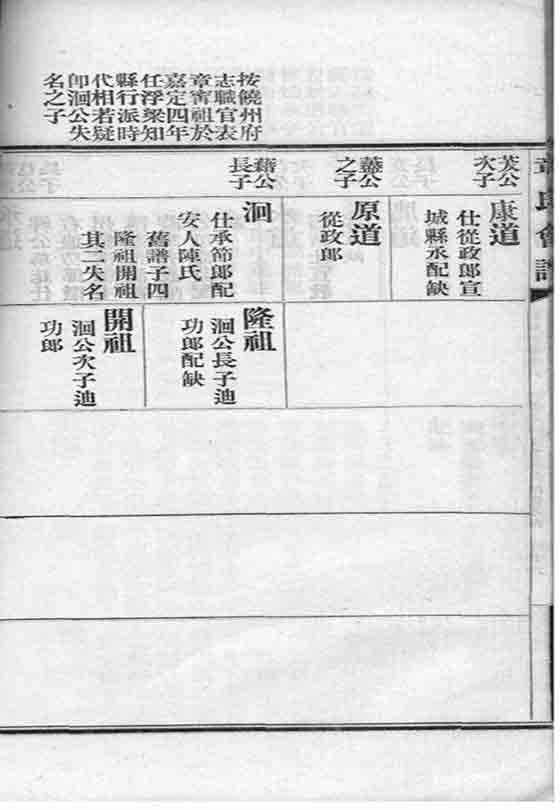 章氏會譜
芡公
次子
康道
仕從政郎宣
城縣丞配缺
虀公
之子
原道
從政郎
藉公
長子
洄
仕承節郎配
安人陳氏
舊譜子四
隆祖開祖
其二失名
隆祖
洄公長子迪
功郎配缺
開祖
洄公次子迪
功郎
按饒州府
志職官表
章甯祖於
嘉定四年
任浮梁知
縣行派時
代相若疑
卽洄公失
名之子